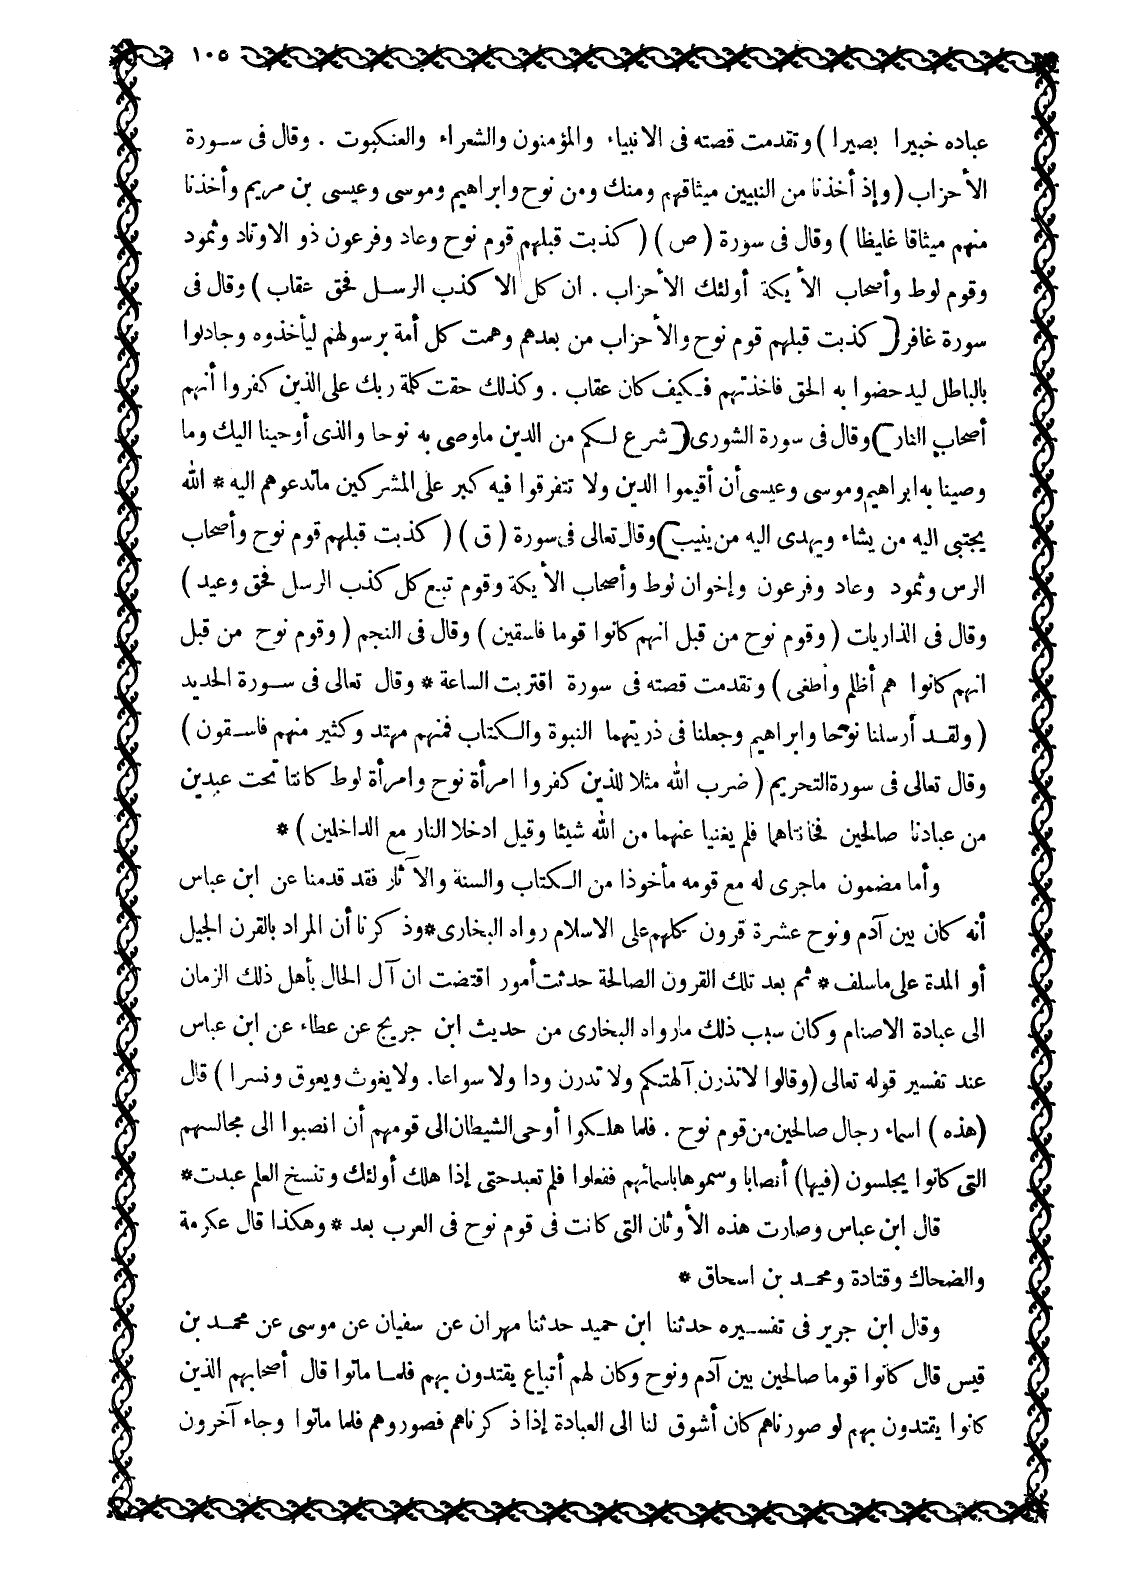 ١٠٥
عباده خبيرا بصيرا ) وتقدمت قصته فى الانبياء والمؤمنون والشعراء والعنكبوت . وقال فى سورة
الأحزاب ( وإذ أخذنا من النبيين ميثاقهم ومنك ومن نوح وابراهيم وموسى وعيسى بن مريم وأخذنا
منهم ميثاقا غليظا ) وقال فى سورة ( ص ) ( كذبت قبلهم قوم نوح وعاد وفرعون ذو الاوتاد وثمود
وقوم لوط وأصحاب الأيكة أولئك الأحزاب . ان كل الا كذب الرسل فحق عقاب ) وقال فى
سورة غافر [ كذبت قبلهم قوم نوح والأحزاب من بعدهم وهمت كل أمة برسولهم ليأخذوه وجادلوا
بالباطل ليدحضوا به الحق فاخذتهم فكيف كان عقاب . وكذلك حقت كلمة ربك على الذين كفروا أنهم
أصحاب النار ] وقال فى سورة الشورى [ شرع لكم من الدين ماوصى به نوحا والذى أوحينا اليك وما
وصينا به ابراهيم وموسى وعيسى أن أقيموا الدين ولا تتفرقوا فيه كبر على المشركين ماتدعوهم اليه * الله
يجتبى اليه من يشاء ويهدى اليه من ينيب ] وقال تعالى فى سورة ( ق ) ( كذبت قبلهم قوم نوح وأصحاب
الرس وثمود وعاد وفرعون وإخوان لوط وأصحاب الأيكة وقوم تبع كل كذب الرسل فحق وعيد )
وقال فى الذاريات ( وقوم نوح من قبل انهم كانوا قوما فاسقين ) وقال فى النجم ( وقوم نوح من قبل
انهم كانوا هم أظلم وأطغى ) وتقدمت قصته فى سورة اقتربت الساعة * وقال تعالى فى سورة الحديد
( ولقد أرسلنا نوحا وابراهيم وجعلنا فى ذريتهما النبوة والكتاب فمنهم مهتد وكثير منهم فاسقون )
وقال تعالى فى سورة التحريم ( ضرب الله مثلا للذين كفروا امرأة نوح وامرأة لوط كانتا تحت عبدين
من عبادنا صالحين فخانتاهما فلم يغنيا عنهما من الله شيئا وقيل ادخلا النار مع الداخلين ) *
وأما مضمون ماجرى له مع قومه مأخوذا من الكتاب والسنة والآثار فقد قدمنا عن ابن عباس
أنه كان بين آدم ونوح عشرة قرون كلهم على الاسلام رواه البخارى * وذكرنا أن المراد بالقرن الجيل
أو المدة على ماسلف * ثم بعد تلك القرون الصالحة حدثت أمور اقتضت ان آل الحال بأهل ذلك الزمان
الى عبادة الاصنام وكان سبب ذلك مارواه البخارى من حديث ابن جريج عن عطاء عن ابن عباس
عند تفسير قوله تعالى ( وقالوا لاتذرن آلهتكم ولا تدرن ودا ولا سواعا. ولا يغوث ويعوق ونسرا ) قال
( هذه ) اسماء رجال صالحين من قوم نوح . فلما هلكوا أوحى الشيطان الى قومهم أن انصبوا الى مجالسهم
التى كانوا يجلسون (فيها) أنصابا وسموها باسمائهم ففعلوا فلم تعبد حتى إذا هلك أولئك وتنسخ العلم عبدت *
قال ابن عباس وصارت هذه الأوثان التى كانت فى قوم نوح فى العرب بعد * وهكذا قال عكرمة
والضحاك وقتادة ومحمد بن اسحاق *
وقال ابن جرير فى تفسيره حدثنا ابن حميد حدثنا مهران عن سفيان عن موسى عن محمد بن
قيس قال كانوا قوما صالحين بين آدم ونوح وكان لهم أتباع يقتدون بهم فلما ماتوا قال أصحابهم الذين
كانوا يقتدون بهم لو صورناهم كان أشوق لنا الى العبادة إذا ذكرناهم فصوروهم فلما ماتوا وجاء آخرون